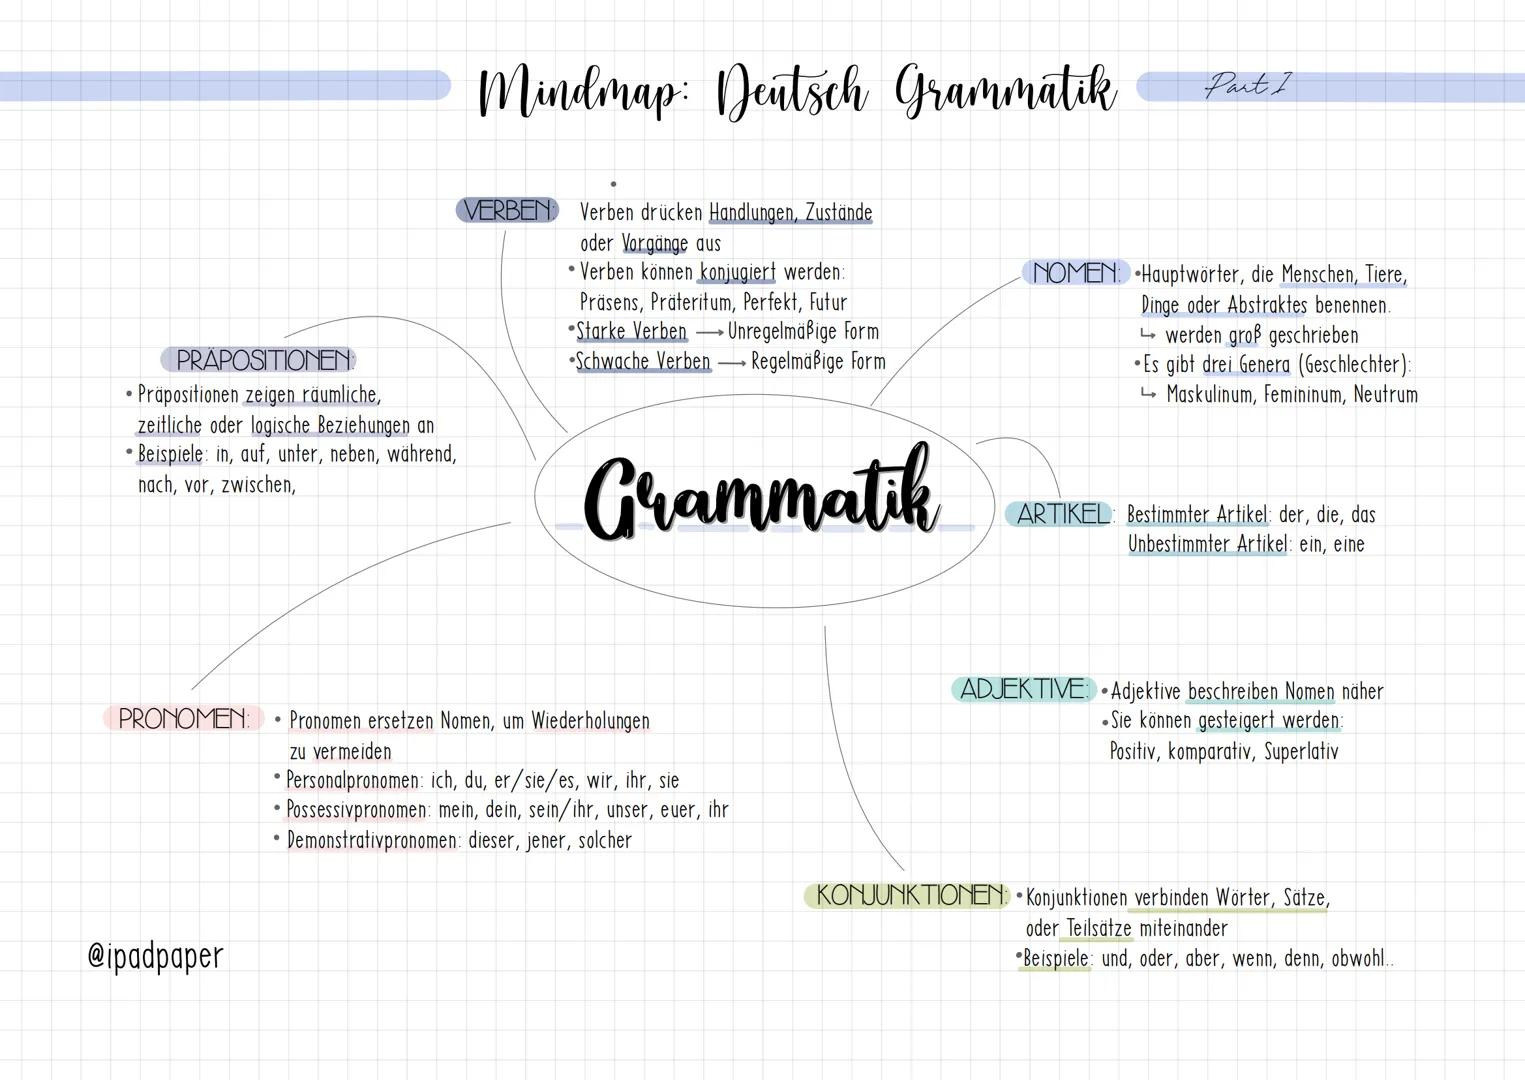 Mindmap: Deutsch Grammatik
Part I
VERBEN:
Verben drücken Handlungen, Zustände
oder Vorgänge aus
• Verben können konjugiert werden:
Präsens, Präteritum, Perfekt, Futur
• Starke Verben → Unregelmäßige Form
• Schwache Verben → Regelmäßige Form
NOMEN:
• Hauptwörter, die Menschen, Tiere,
Dinge oder Abstraktes benennen.
↳ werden groß geschrieben
• Es gibt drei Genera (Geschlechter):
↳ Maskulinum, Femininum, Neutrum
PRÄPOSITIONEN:
• Präpositionen zeigen räumliche,
zeitliche oder logische Beziehungen an
• Beispiele: in, auf, unter, neben, während,
nach, vor, zwischen,
Grammatik
ARTIKEL:
Bestimmter Artikel: der, die, das
Unbestimmter Artikel: ein, eine
ADJEKTIVE:
• Adjektive beschreiben Nomen näher
• Sie können gesteigert werden:
Positiv, komparativ, Superlativ
PRONOMEN:
• Pronomen ersetzen Nomen, um Wiederholungen
zu vermeiden
• Personalpronomen: ich, du, er/sie/es, wir, ihr, sie
• Possessivpronomen: mein, dein, sein/ihr, unser, euer, ihr
• Demonstrativpronomen: dieser, jener, solcher
KONJUNKTIONEN:
• Konjunktionen verbinden Wörter, Sätze,
oder Teilsätze miteinander
• Beispiele: und, oder, aber, wenn, denn, obwohl..
@ipadpaper